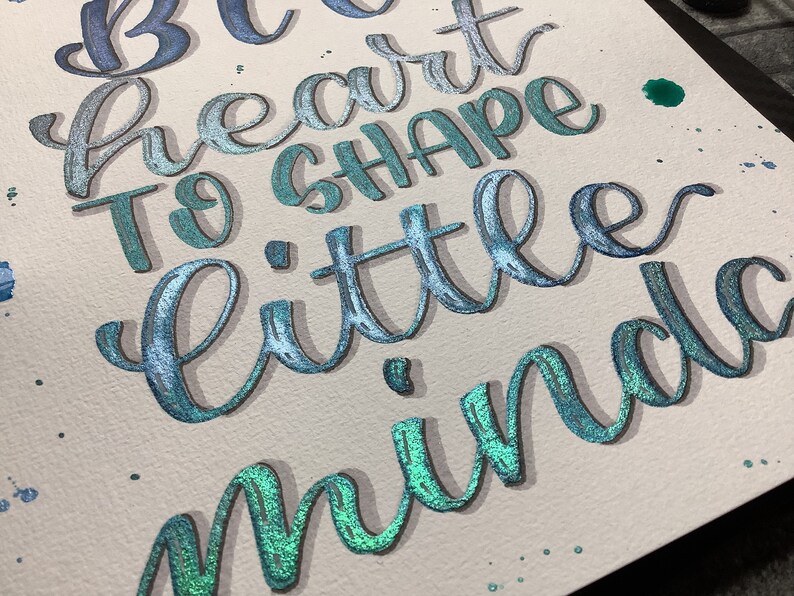 BIG
heart
TO SHAPE
little
minds